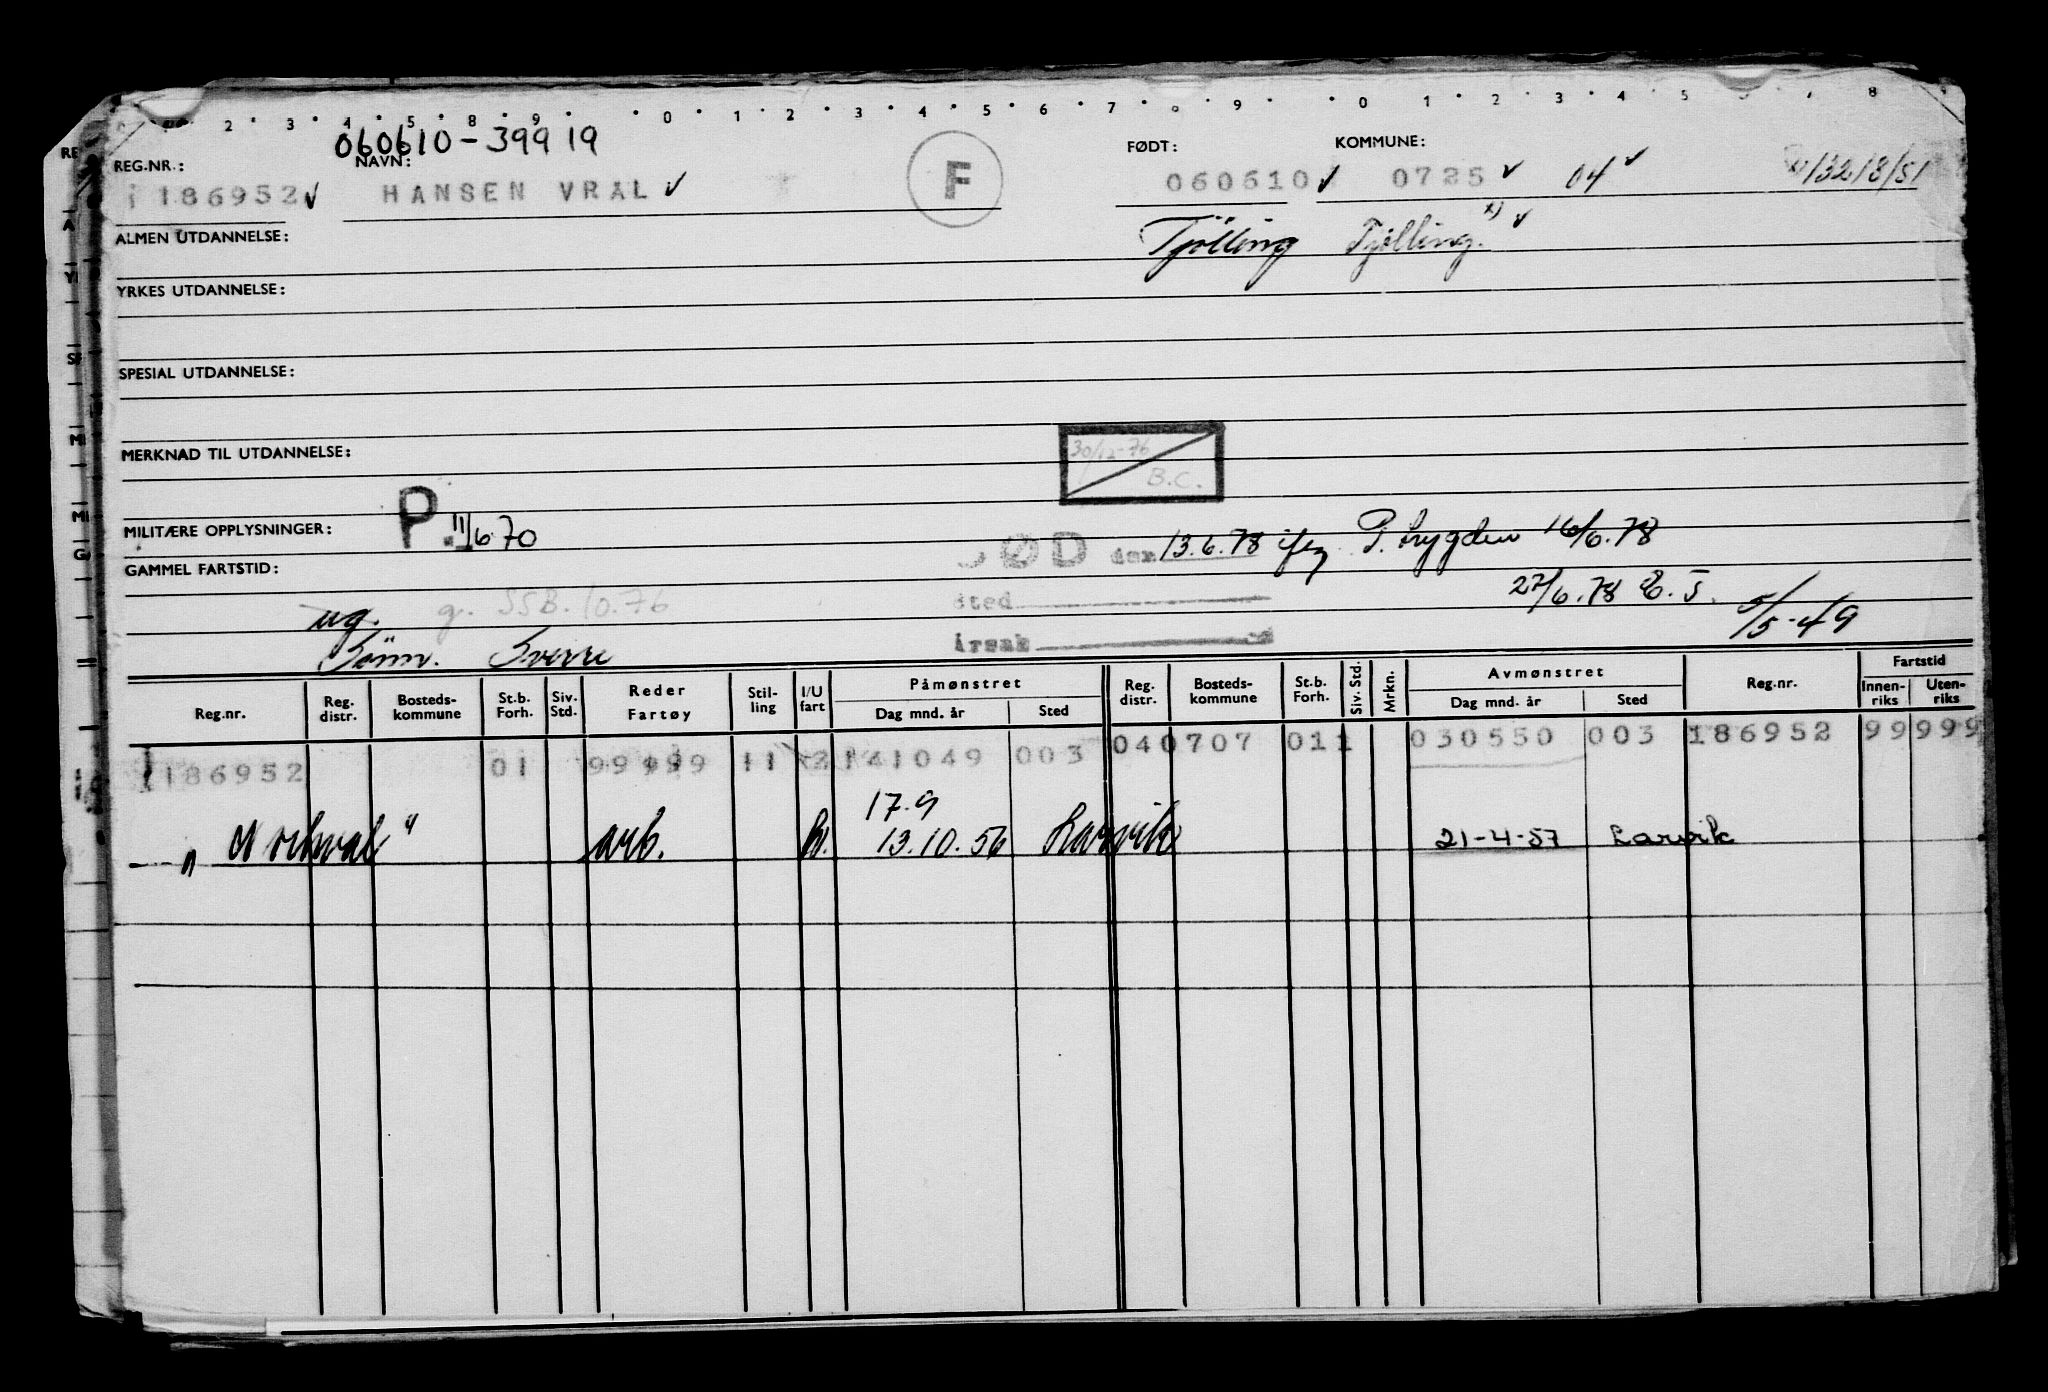 2 3 4 5 8 9 0 1 2 3 4 5 6 7 8 9 0 1 2 3 4 5 7 8
060610-39919
REG.NR.: NAVN: FØDT: KOMMUNE:
186952 HANSEN VRAL F 060610 0725 04 x) 13218/51
ALMEN UTDANNELSE: Tjølling Tjølling. x)
YRKES UTDANNELSE:
SPESIAL UTDANNELSE:
MERKNAD TIL UTDANNELSE: 30/12-76
B.C.
MILITÆRE OPPLYSNINGER: P. 11/6 70
DØD den 13.6.78 ifg P. trygden 16/6.78
GAMMEL FARTSTID:
sted 27/6.78 E.J.
ug. g. SSB. 10.76 5/5-49
Årsak
Sønn. Sverre
Reg.nr. Reg. distr. Bosteds-kommune St.b. Forh. Siv. Std. Reder Fartøy Stil-ling I/U fart Påmønstret Dag mnd. år Sted Reg. distr. Bosteds-kommune St.b. Forh. Siv. Std. Mrkn. Avmønstret Dag mnd. år Sted Reg.nr. Fartstid Innen-riks Uten-riks
186952 01 99999 11 2 141049 003 040707 011 030550 003 186952 99 999
17.9
"Norhval" arb. 13.10.56 Larvik 21-4-57 Larvik